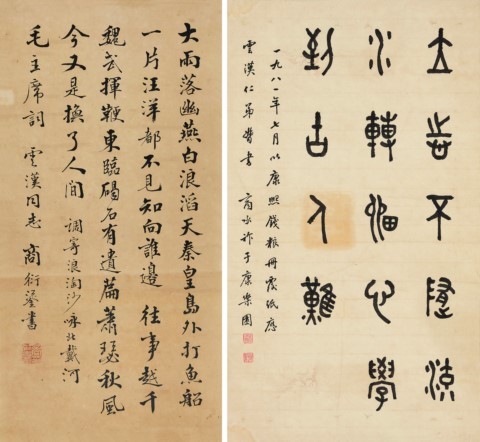 不流
水轉心學
到古人難
一九八一年七月以康熙錢糧冊紙應
雲漢仁弟書 商承祚于康樂園
大雨落幽燕白浪滔天秦皇島外打魚船
一片汪洋都不見知向誰邊 往事越千
魏武揮鞭東臨碣石有遺篇蕭瑟秋風
今又是換了人間 調寄浪淘沙 詠北戴河
毛主席詞 雲漢同志 商衍鎏書